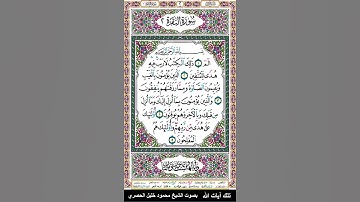 سورة البقرة
بسم الله الرحمن الرحيم
الم ذلك الكتب لا ريب فيه
هدى للمتقين الذين يؤمنون بالغيب
ويقيمون الصلوة ومما رزقنهم ينفقون
والذين يؤمنون بما أنزل إليك وما أنزل
من قبلك وبالآخرة هم يوقنون أولئك
على هدى من ربهم وأولئك هم
المفلحون
تلك آيات الله بصوت الشيخ محمود خليل الحصري